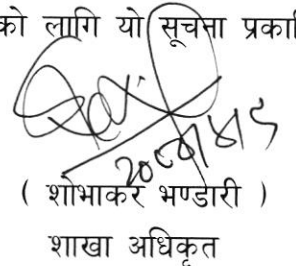 को लागि यो सूचना प्रकाशि
( शोभाकर भण्डारी )
शाखा अधिकृत